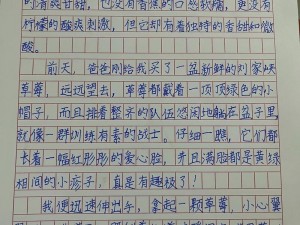 的清爽甘甜，也没有香蕉的口感软糯，更没有
柠檬的酸爽刺激，但它却有着独特的香甜和微
酸。
前天，爸爸刚给我买了一盆新鲜的刘家峡
草莓，远远望去，草莓都戴着一顶顶绿色的小
帽子，而且排着整齐的队伍悠闲地躺在盆子里，
就像一群训练有素的战士。仔细一瞧，它们都
长着一幅红彤彤的爱心脸，并且满脸都是黄绿
相间的小痣子，真是有趣极了！
我便迅速伸出手，拿起一颗草莓，小心翼